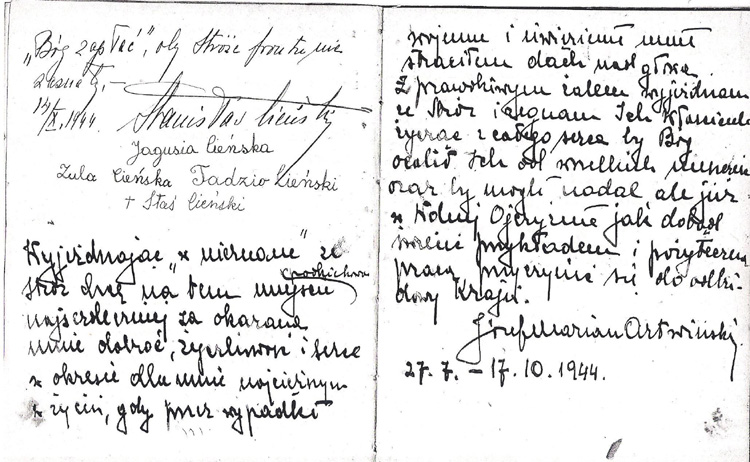 "Bóg zapłać", oby Stróże frontu nie
zaznały.–
14/X.1944. Stanisław Cieński
Jagusia Cieńska
Zula Cieńska Tadzio Cieński
+ Staś Cieński
Wyjeżdżając "w nieznane" ze
Stróż chcę na tem miejscu podziękować
najserdeczniej za okazaną
mnie dobroć, życzliwość i serce
w okresie dla mnie najcięższym
w życiu, gdy przez wypadki
wojenne i
straciłem dach nad głową.
Z prawdziwym żalem wyjeżdżam
ze Stróż i żegnam Ich Właścicieli
życząc z całego serca by Bóg
ocalił Ich od wszelkich nieszczęść
oraz by mogli nadal ale już
w Wolnej Ojczyźnie jak dotąd
świecić przykładem i pożyteczną
pracą przyczynić się do odbu-
dowy Kraju.
Józef Marian Artwiński
27.7. – 17.10.1944.